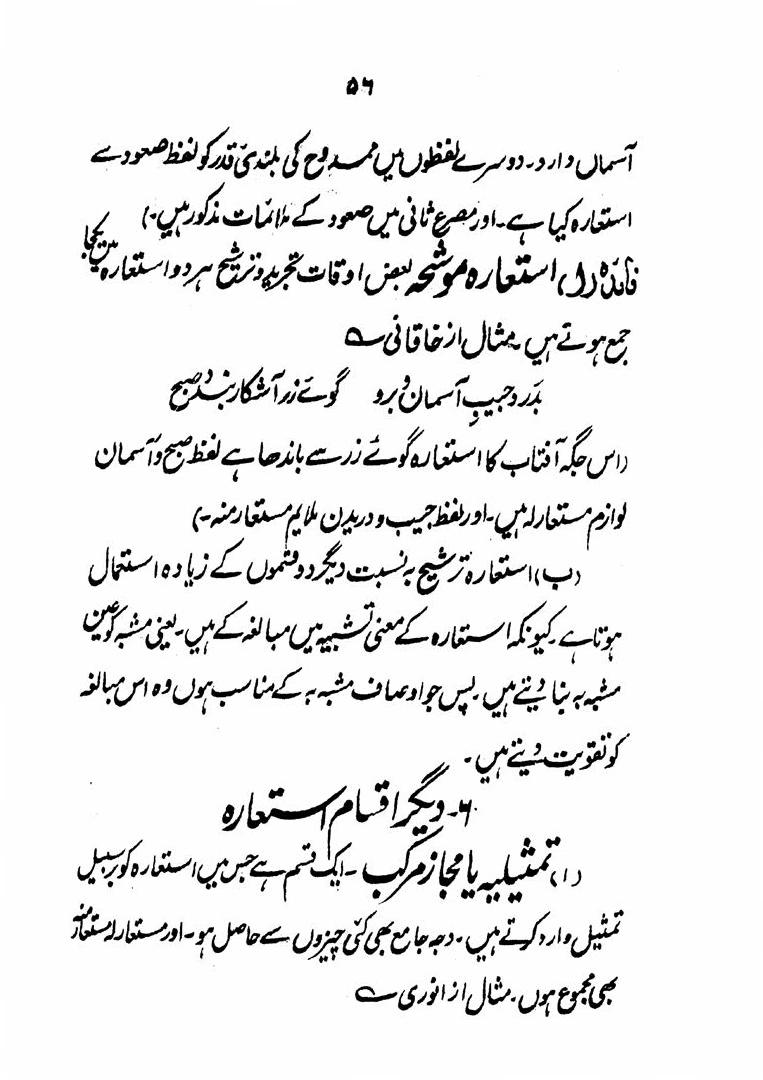 ۵۶
آسماں دارد۔ دوسرے لفظوں میں ممدوح کی بلندیٔ قدر کو لفظ صعود سے
استعارہ کیا ہے۔ اور مصرع ثانی میں صعود کے ملائمات مذکور ہیں۔)
فائدہ (ا) استعارہ موشحہ بعض اوقات تجرید و ترشیح ہر دو استعارہ میں یکجا
جمع ہوتے ہیں۔ مثال از خاقانی ؎
بدرد جیبِ آسمان و برو گوئے زر آشکار بندد صبح
(اس جگہ آفتاب کا استعارہ گوئے زر سے باندھا ہے لفظ صبح و آسمان
لوازم مستعار لہ ہیں۔ اور لفظ جیب و دریدن ملایم مستعار منہ۔)
(ب) استعارہ ترشیح بہ نسبت دیگر دو قسموں کے زیادہ استعمال
ہوتا ہے۔ کیونکہ استعارہ کے معنی تشبیہ میں مبالغہ کے ہیں۔ یعنی مشبہ کو عین
مشبہ بہ بنا دیتے ہیں۔ پس جو اوصاف مشبہ بہ کے مناسب ہوں وہ اس مبالغہ
کو تقویت دیتے ہیں۔
۶۔ دیگر اقسام استعارہ
(۱) تمثیلیہ یا مجاز مرکب۔ ایک قسم ہے جس میں استعارہ کو بر سبیل
تمثیل وارد کرتے ہیں۔ وجہ جامع بھی کئی چیزوں سے حاصل ہو۔ اور مستعار لہ مستعار منہ
بھی مجموع ہوں۔ مثال از انوری ؎